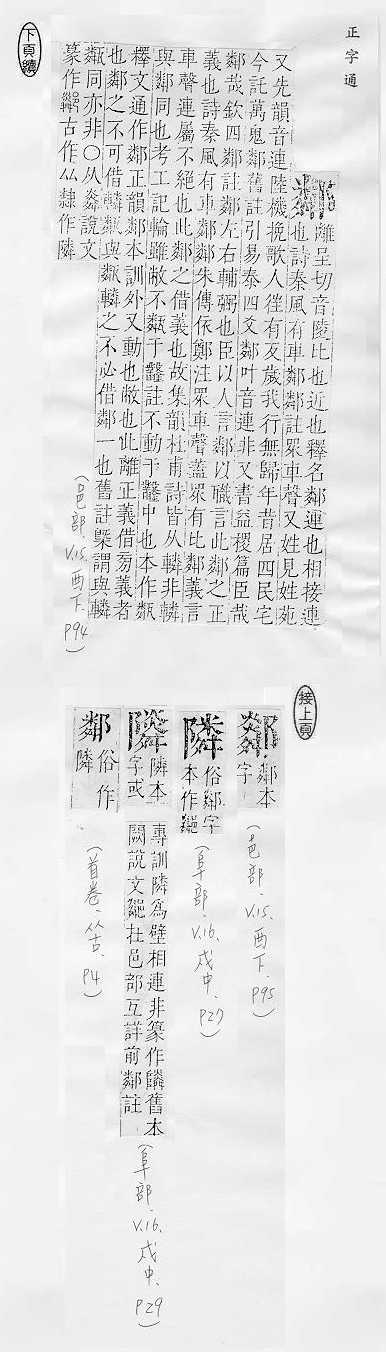 正字通
鄰離呈切音陵比也近也釋名鄰連也相接連
也詩秦風有車鄰鄰註眾車聲又姓見姓苑
又先韻音連陸機挽歌人徃有反歲我行無歸年昔居四民宅
今託萬鬼鄰舊註引易泰四文鄰叶音連非又書益稷篇臣哉
鄰哉欽四鄰註鄰左右輔弼也臣以人言鄰以職言此鄰之正
義也詩秦風有車鄰鄰朱傳依鄭注眾車聲蓋眾有比鄰義言
車聲連屬不絕也此鄰之借義也故集韻杜甫詩皆从轔非轔
與鄰同也考工記輪雖敝不甐于鑿註不動于鑿中也本作甐
釋文通作鄰正韻鄰本訓外又動也敝也此離正義借旁義者
也鄰之不可借轔甐與甐轔之不必借鄰一也舊註槩謂與轔
甐同亦非○从粦說文
篆作 古作厸隸作隣
(邑部.V.15.酉下.P94)
下頁續
接上頁
鄰本
字
(邑部.V.15.酉下.P95)
隣俗鄰字
本作
(阜部.V.16.戌中.P27)
隣本
字或
專訓隣為壁相連非篆作 舊本
闕說文 在邑部互詳前鄰註
(阜部.V.16.戌中.P29)
鄰俗作
隣
(首卷.从古.P4)